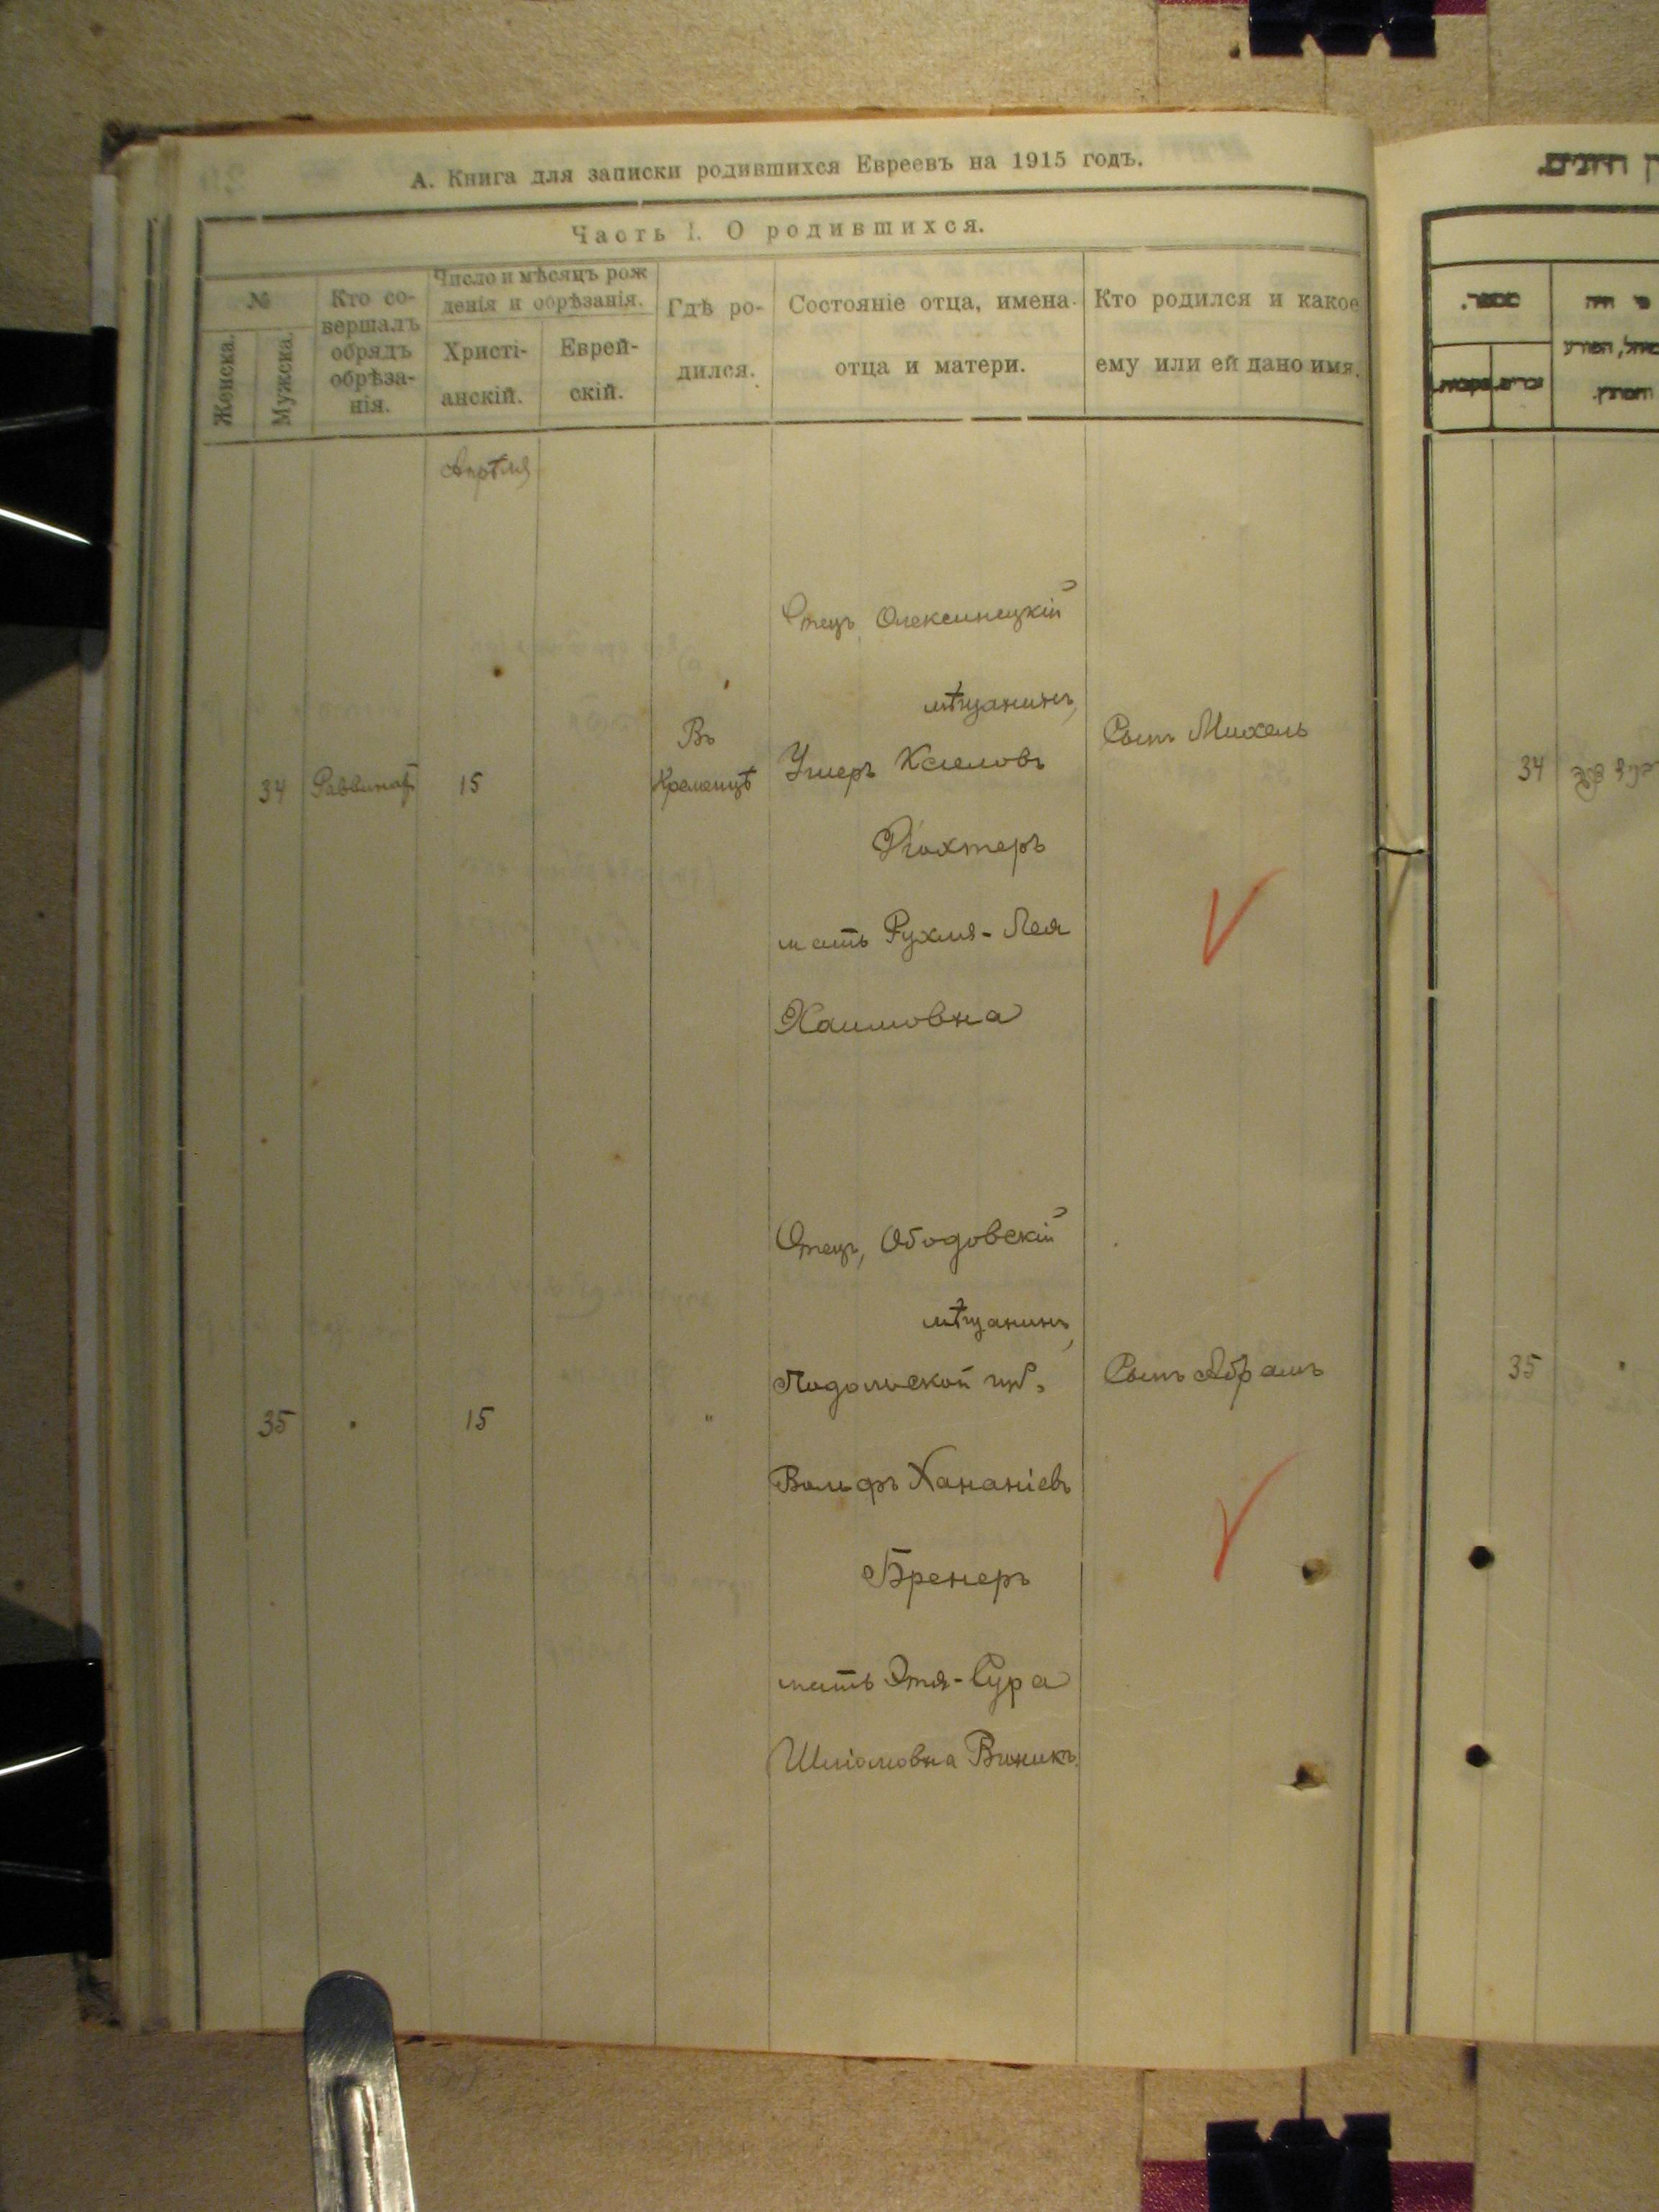 А. Книга для записки родившихся Евреевъ на 1915 годъ.
Часть I. О родившихся.
№
Женска.
Мужска.
Кто со-
вершалъ
обрядъ
обрѣза-
нія.
Число и мѣсяцъ рож
денія и обрѣзанія.
Христі-
анскій.
Еврей-
скій.
Гдѣ ро-
дился.
Состояніе отца, имена
отца и матери.
Кто родился и какое
ему или ей дано имя.
Апрѣля
34
15
Въ
Кременцѣ
Отецъ Олексинецкій
мѣщанинъ,
Ушеръ
мать Рухля-Лея
Хаимовна
Сынъ Михель
35
"
15
"
Отецъ, Ободовскій
мѣщанинъ,
Подольской губ.
Вольфъ Хананіевъ
Бренеръ
мать Этя-Сура
Шліомовна Виникъ.
Сынъ Абрамъ
מספר.
34
35